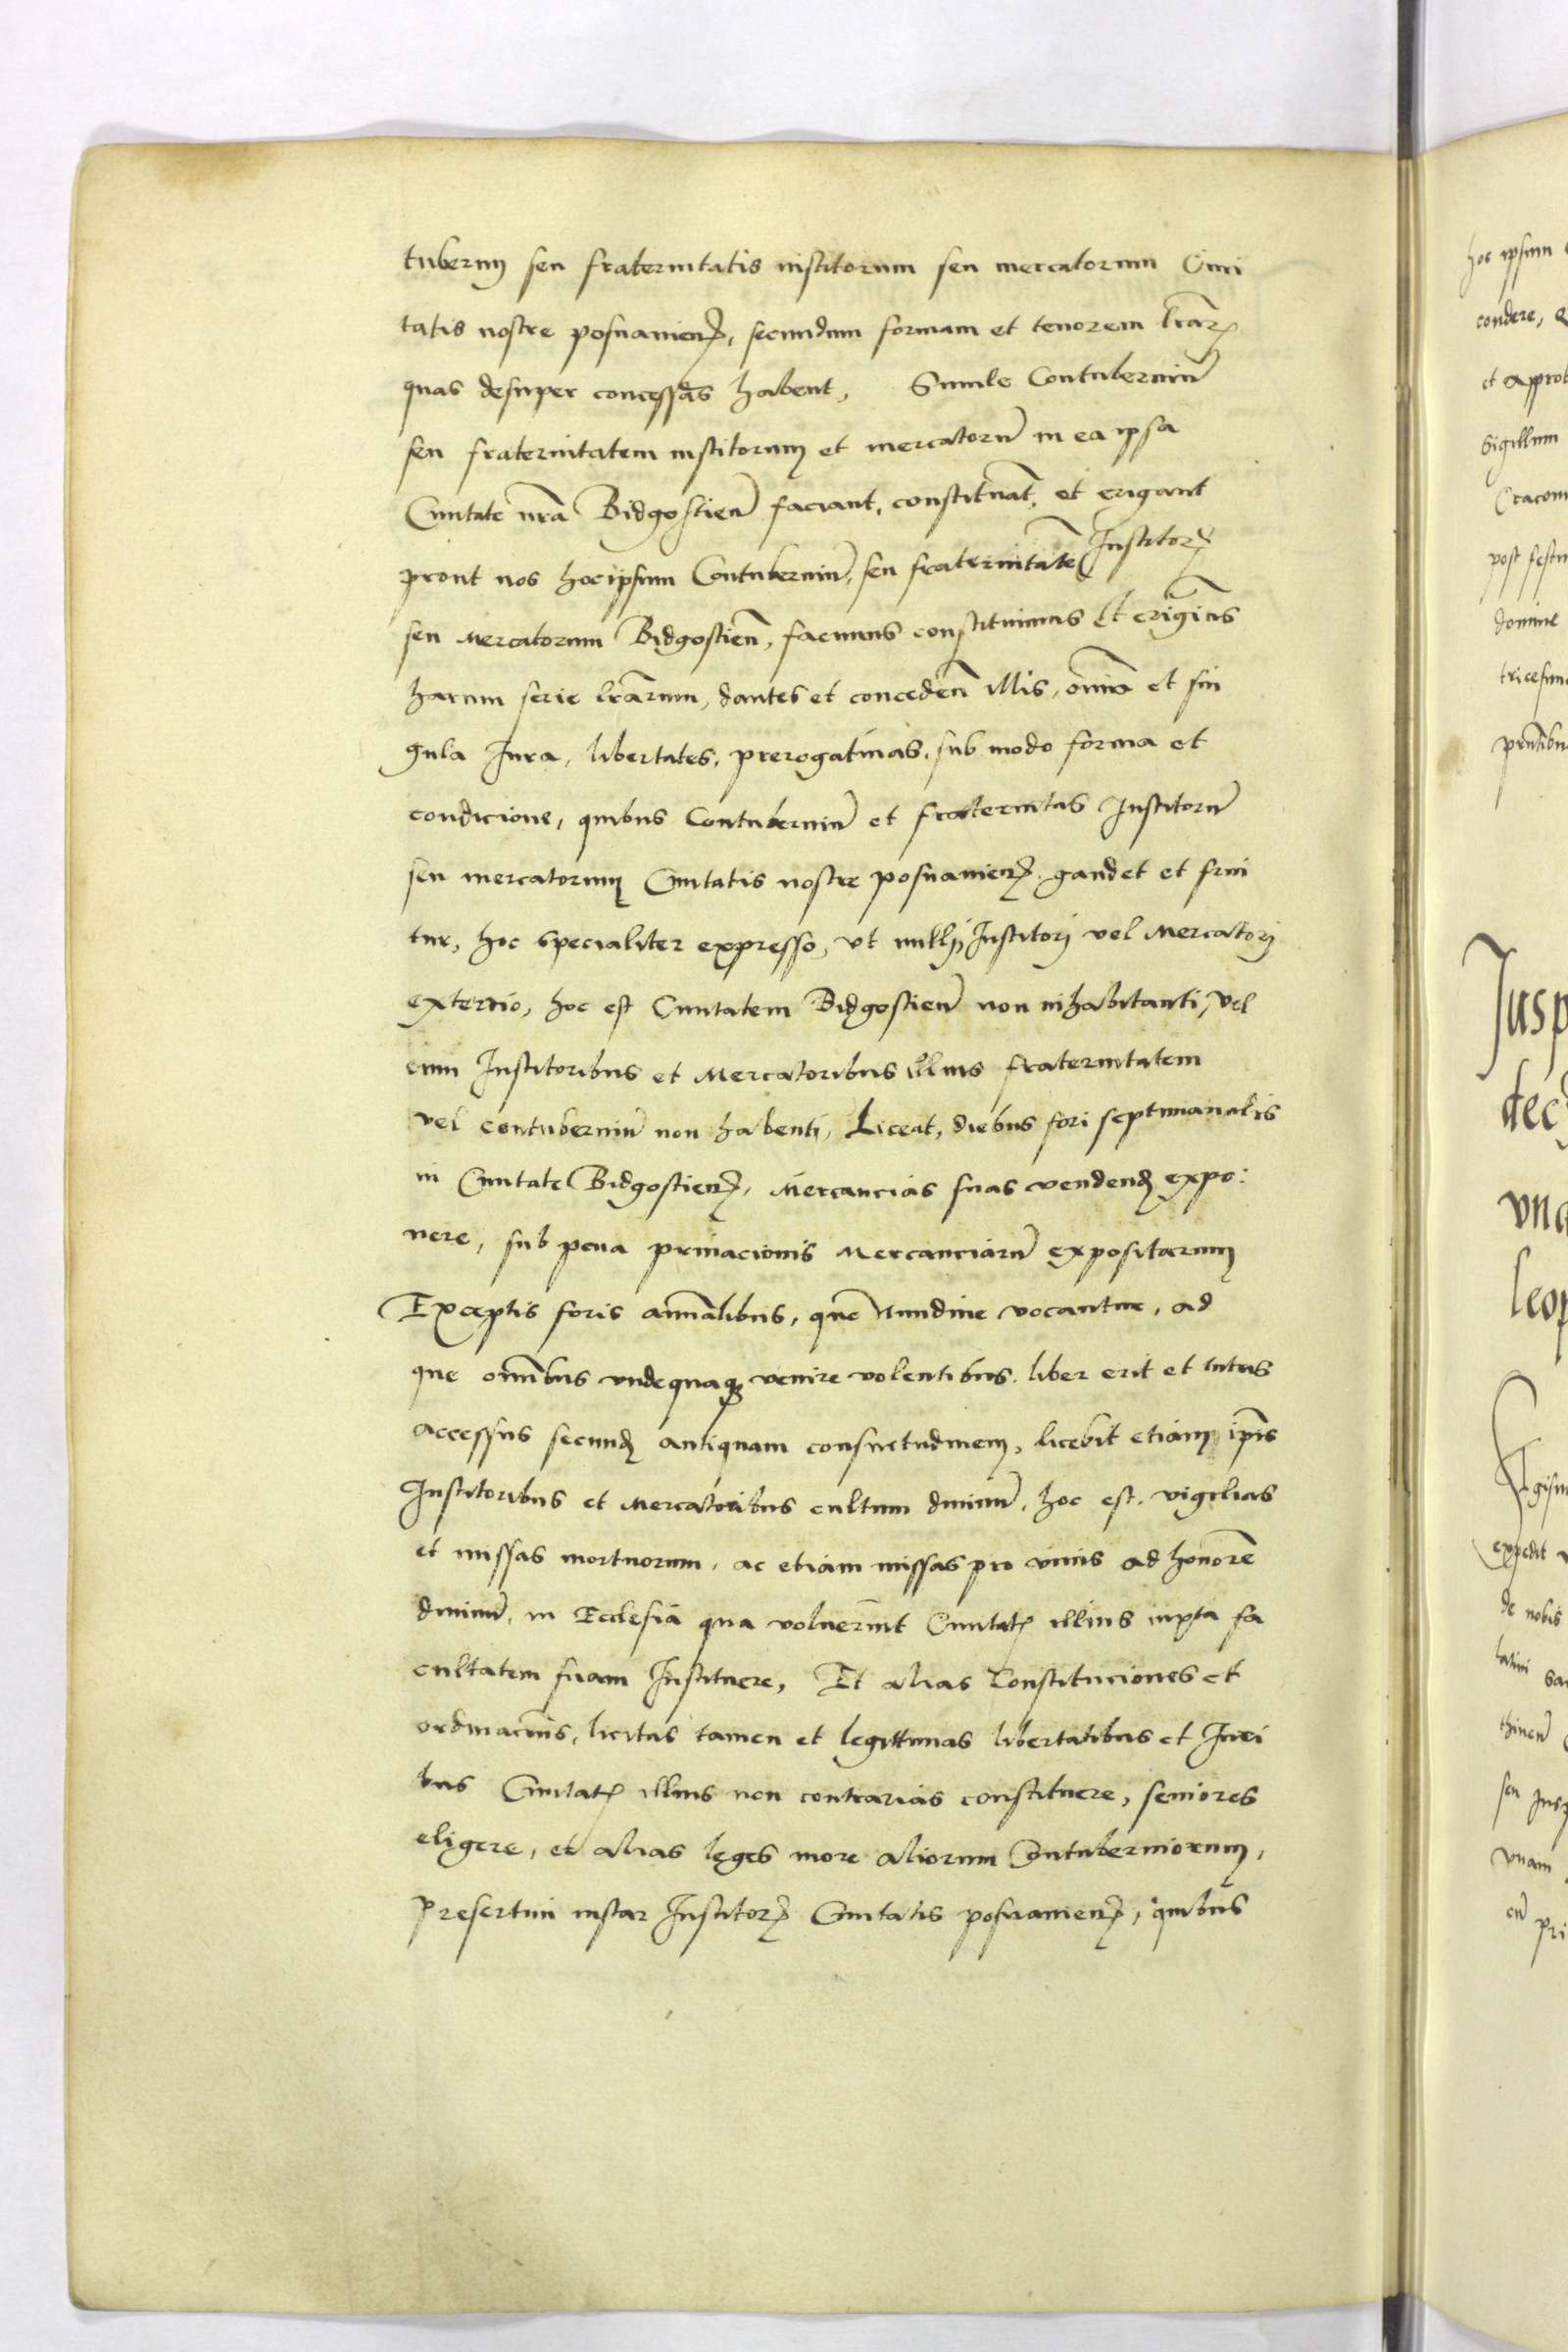 tubernij seu fraternitatis institorum seu mercatorum Ciui
tatis nostre posnanien, secundum formam et tenorem lrarum
quas desuper concessas habent, Simile Contuberniu
seu fraternitatem institorum et mercatoru in ea ipsa
Ciuitate nra Bidgostien faciant, constituat, et erigant
prout nos hocipsum Contuberniu, seu fraternitate Institor
seu Mercatorum Bidgostien, facimus constituimus Et erigims
harum serie lrarum, dantes et conceden illis, omia et sin
gula Iura, libertates, prerogatiuas, sub modo forma et
condicione, quibus Contuberniu et fraternitas Institoru
seu mercatorum Ciuitatis nostre posnanien, gaudet et frui
tur, hoc specialiter expresso, vt nullj Institorj vel Mercatorj
externo, hoc est Ciuitatem Bidgostien non inhabitanti, vel
cum Institoribus et Mercatoribus illius fraternitatem
vel contuberniu non habenti, Liceat, diebus fori septimanalis
in Ciuitate Bidgostien, Mercancias suas vendend expo:
nere, sub pena priuacionis Mercanciaru expositarum
Exceptis foris annalibus, que Nundine vocantur, ad
que omibus vndequaq venire volentibus, liber erit et tutus
accessus secund antiquam consuetudinem, licebit etiam ipis
Institoribus et Mercatoribus cultum diuinu, hoc est, vigilias
et missas mortuorum, ac etiam missas pro viuis ad honore
diuinu, in Ecclesia qua voluerint Ciuitat illius iuxta fa
cultatem suam Instituere, Et alias Constituciones et
ordinacnis, licitas tamen et legittimas libertatibus et Iuri
bus Ciuitat illius non contrarias constituere, seniores
eligere, et alias leges more aliorum Contuberniorum,
presertim instar Institor Ciuitatis posnanien, quibus
hoc ipsum
condere,
et approb
Sigillum
Cracoui
post festu
domini
tricesimo
prntibu
Jusp
dec
vna
leop
gism
expedit
de nobis
latini
thinen
seu
vnam
pri